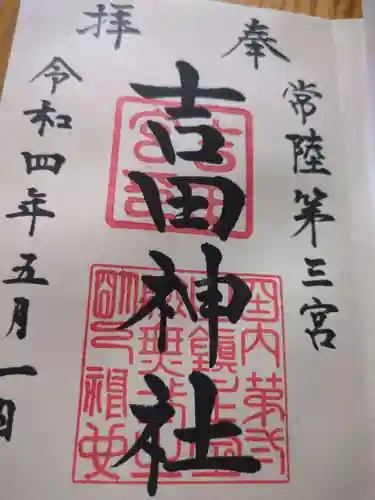 奉拝
常陸第三宮
吉田神社
令和四年五月一日